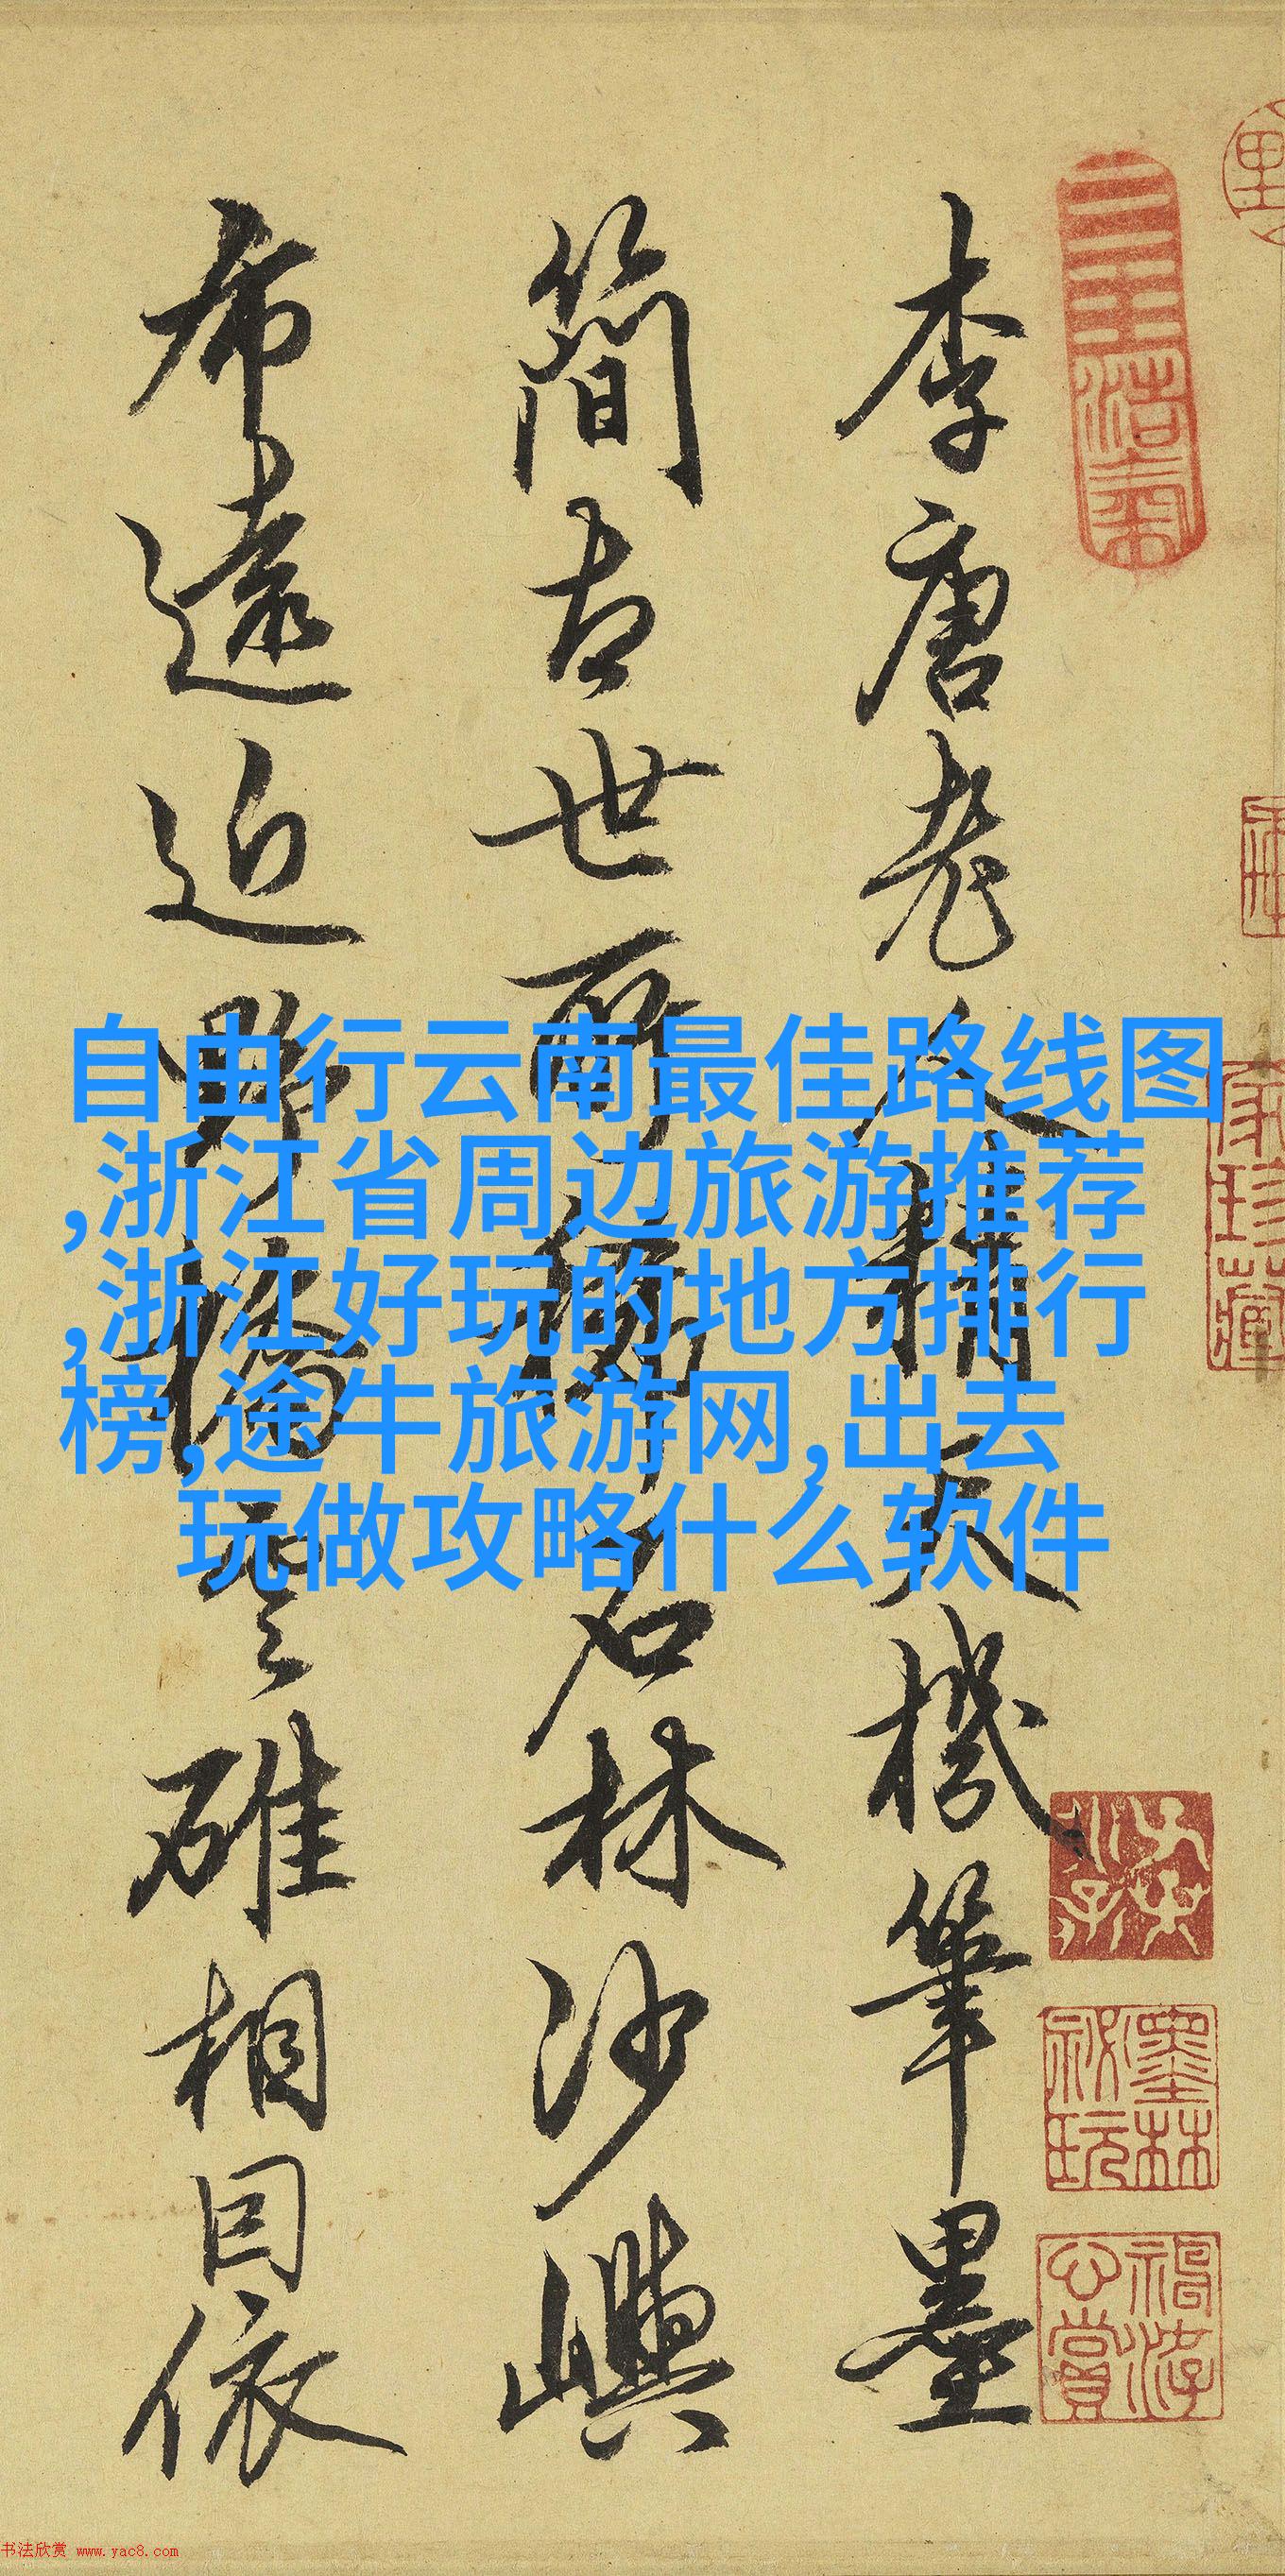 自由行云南最佳路线图
,浙江省周边旅游推荐
,浙江好玩的地方排行
榜,途牛旅游网,出去
玩做攻略什么软件
李唐老人精天機筆墨
簡古世所石林沙嶼
布遠近野橋雲碓相因依
墨林秘玩
书法欣赏 www.yac8.com